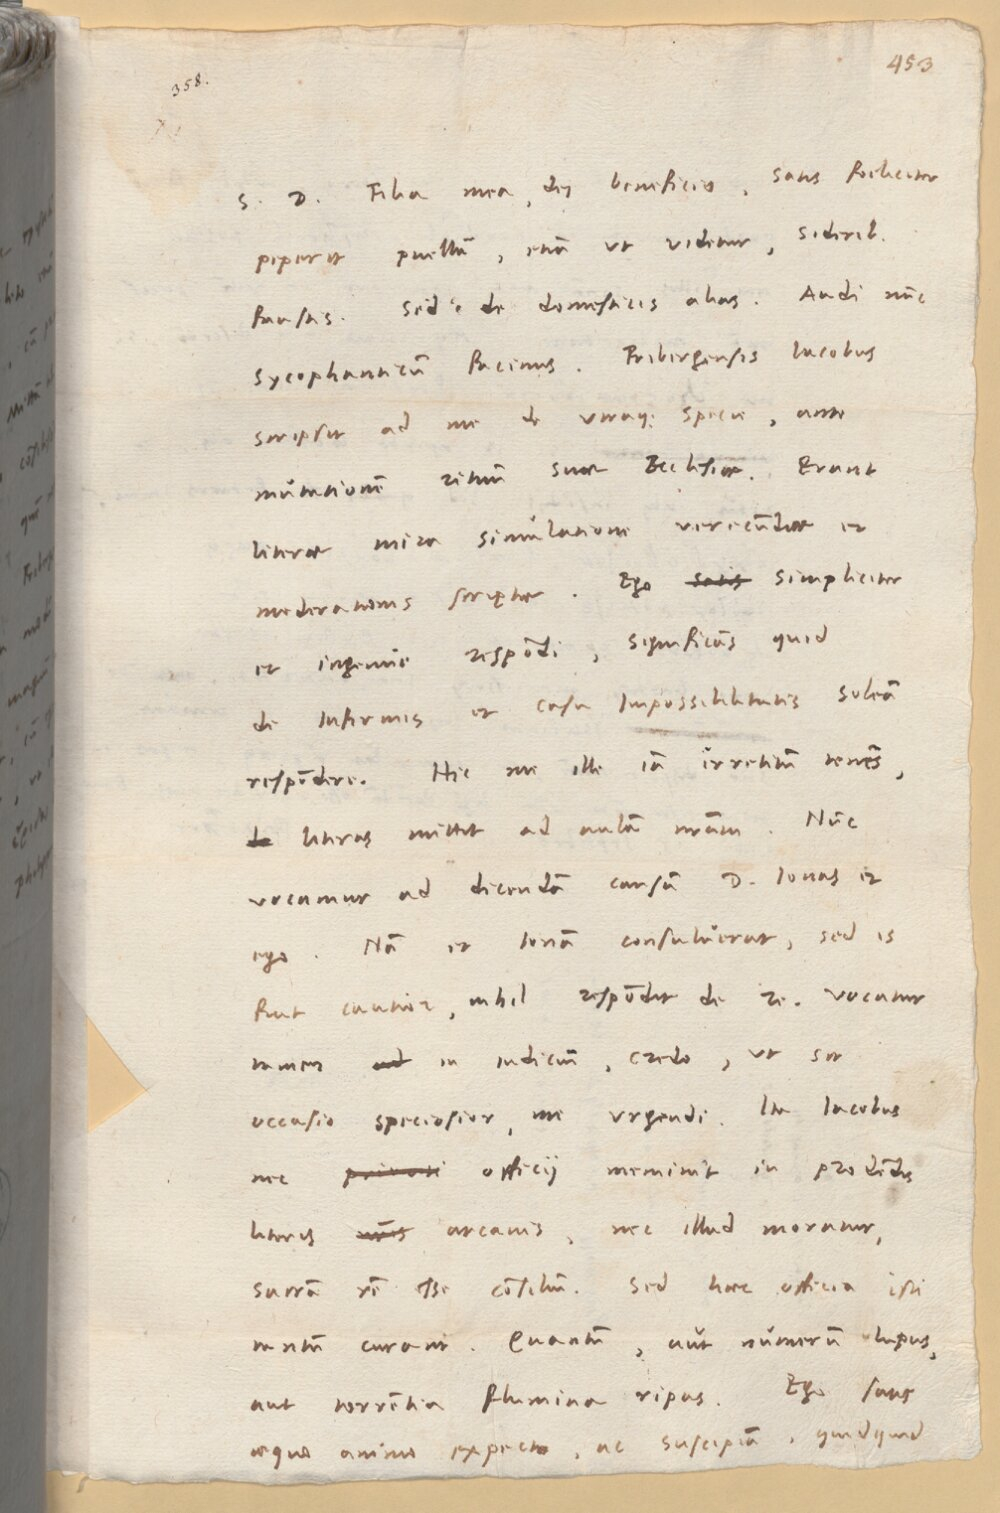 453
358.
S. D. Filia mea, dei beneficio, satis foeliciter
peperit puellā, etiā ut videtur, siderib.
faustis. Sed de domesticis alias. Audi nūc
sycophanticū facinus. Fribergensis Iacobus
scripsit ad me de utraq; specie, ante
mutationē rituū suae Ecclesiae. Erant
literae mira simulatione verecūdiae et
moderationis scriptae. Ego satis simpliciter
et ingenue respōdi, significās quid
de Infirmis et casu Impossibilitatis soleā
respōdere. Hic me ille iā irretitū tenēs,
literas mittit ad aulā nrām. Nūc
vocamur ad dicendā causā D. Ionas et
ego. Nā et Ionā consuluerat, sed is
fuit cautior, nihil respōdit de re. Vocatur
tamen ad in iudiciū, credo, ut sit
occasio speciosior, me urgendi. Ita Iacobus
nec privati officij meminit in prodēdis
literis nr̄is arcanis, nec illud moratur,
sacrā rē esse cōsiliū. Sed haec officia isti
tantū curant. Quantū, aut numerū lupus,
aut torrētia flumina ripas. Ego satis
aequo animo expecto, ac suscipiā, quidquid